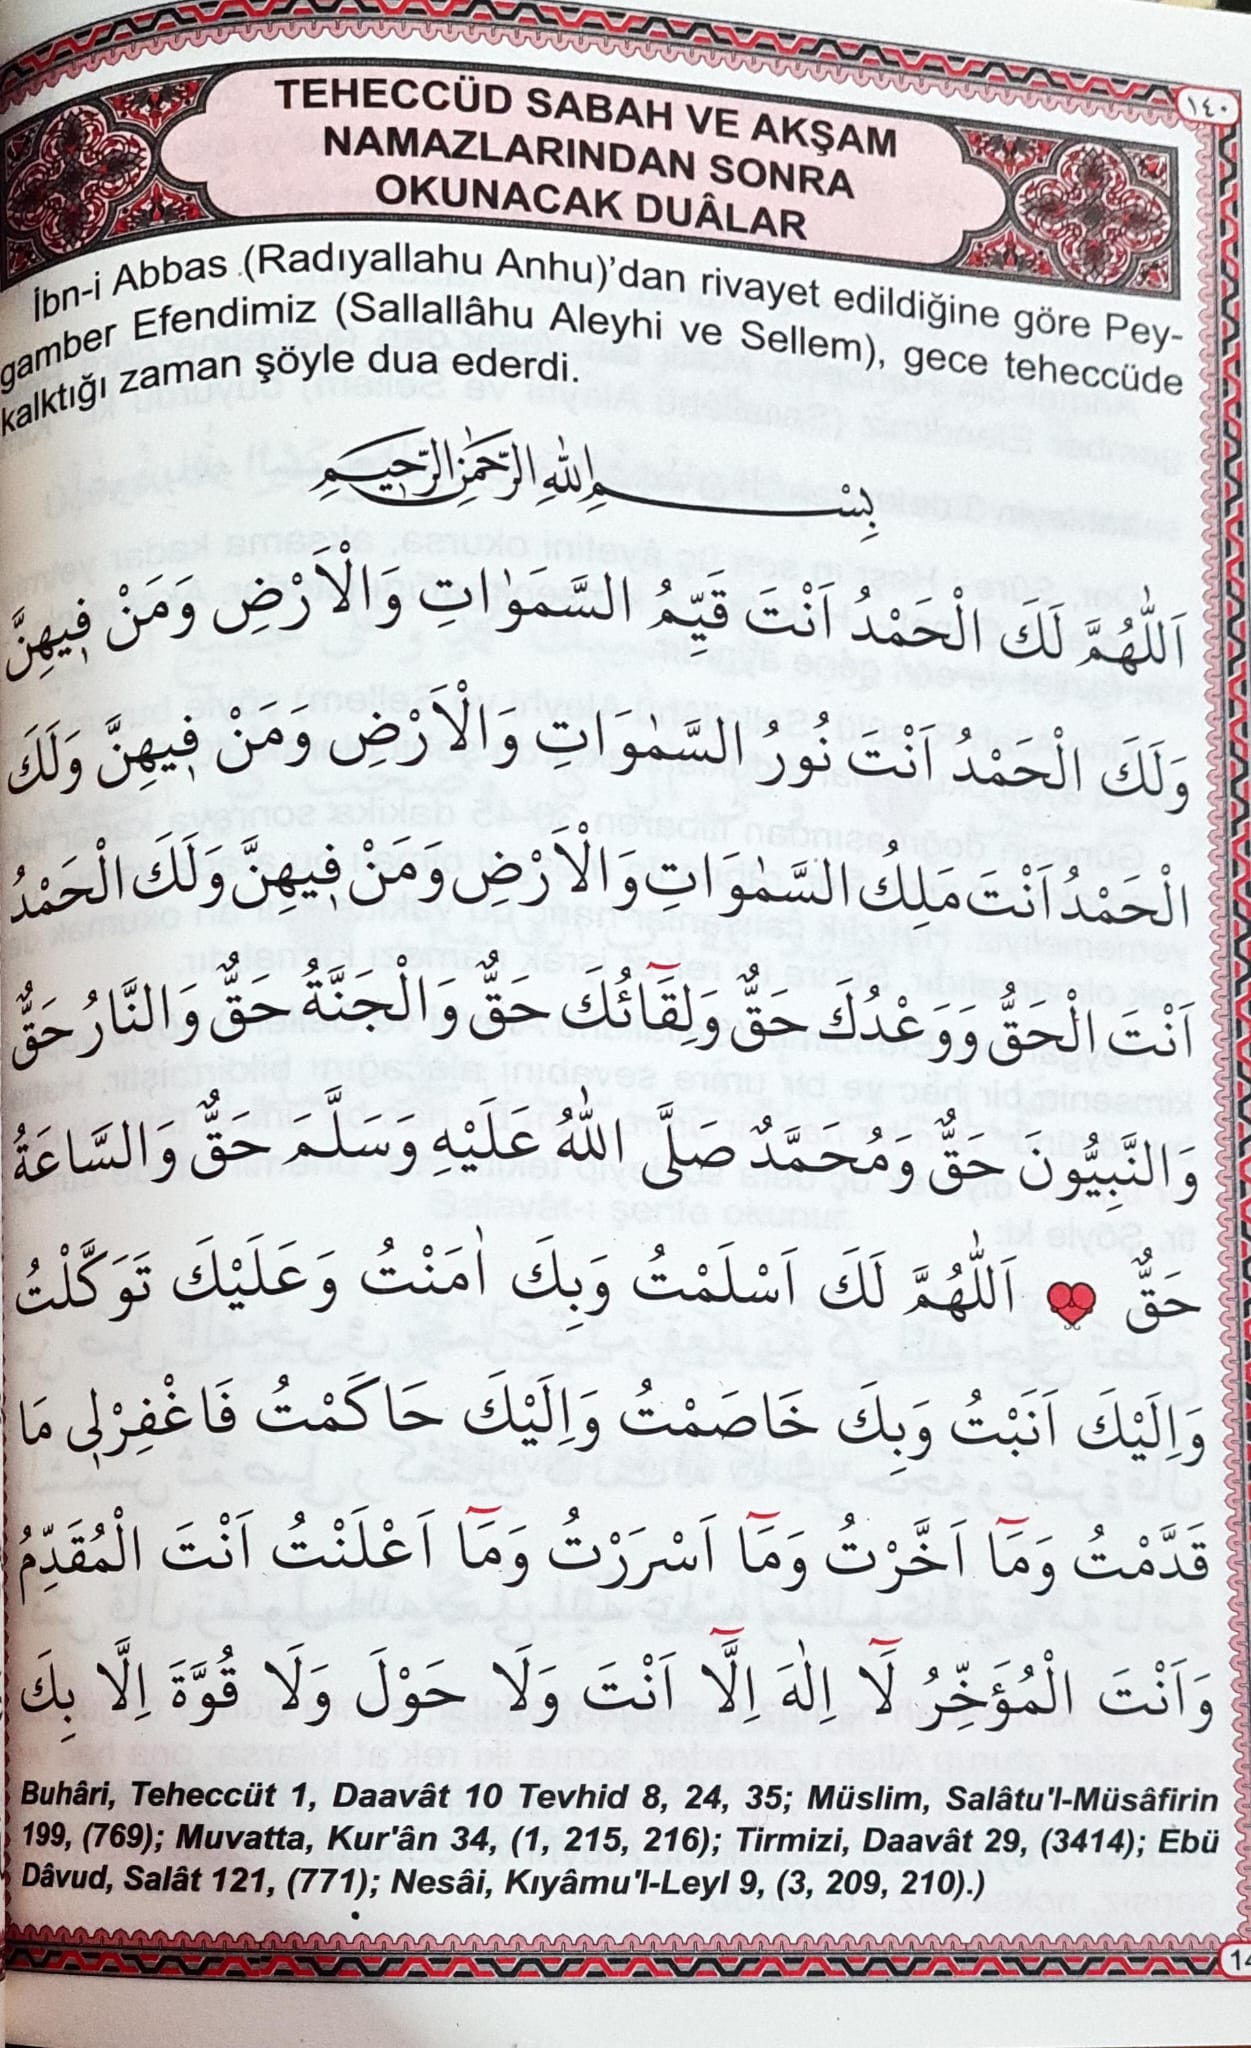 ١٤٠
TEHECCÜD SABAH VE AKŞAM
NAMAZLARINDAN SONRA
OKUNACAK DUÂLAR
İbn-i Abbas (Radıyallahu Anhu)'dan rivayet edildiğine göre Pey-
gamber Efendimiz (Sallallâhu Aleyhi ve Sellem), gece teheccüde
kalktığı zaman şöyle dua ederdi.
بِسْمِ اللّٰهِ الرَّحْمٰنِ الرَّحِيمِ
اَللّٰهُمَّ لَكَ الْحَمْدُ اَنْتَ قَيِّمُ السَّمٰوَاتِ وَالْاَرْضِ وَمَنْ فِيهِنَّ
وَلَكَ الْحَمْدُ اَنْتَ نُورُ السَّمٰوَاتِ وَالْاَرْضِ وَمَنْ فِيهِنَّ وَلَكَ
الْحَمْدُ اَنْتَ مَلِكُ السَّمٰوَاتِ وَالْاَرْضِ وَمَنْ فِيهِنَّ وَلَكَ الْحَمْدُ
اَنْتَ الْحَقُّ وَوَعْدُكَ حَقٌّ وَلِقَٓائُكَ حَقٌّ وَالْجَنَّةُ حَقٌّ وَالنَّارُ حَقٌّ
وَالنَّبِيُّونَ حَقٌّ وَمُحَمَّدٌ صَلَّى اللّٰهُ عَلَيْهِ وَسَلَّمَ حَقٌّ وَالسَّاعَةُ
حَقٌّ اَللّٰهُمَّ لَكَ اَسْلَمْتُ وَبِكَ اٰمَنْتُ وَعَلَيْكَ تَوَكَّلْتُ
وَاِلَيْكَ اَنَبْتُ وَبِكَ خَاصَمْتُ وَاِلَيْكَ حَاكَمْتُ فَاغْفِرْلِي مَا
قَدَّمْتُ وَمَٓا اَخَّرْتُ وَمَٓا اَسْرَرْتُ وَمَٓا اَعْلَنْتُ اَنْتَ الْمُقَدِّمُ
وَاَنْتَ الْمُؤَخِّرُ لَٓا اِلٰهَ اِلَّٓا اَنْتَ وَلَا حَوْلَ وَلَا قُوَّةَ اِلَّا بِكَ
Buhâri, Teheccüt 1, Daavât 10 Tevhid 8, 24, 35; Müslim, Salâtu'l-Müsâfirin
199, (769); Muvatta, Kur'ân 34, (1, 215, 216); Tirmizi, Daavât 29, (3414); Ebü
Dâvud, Salât 121, (771); Nesâi, Kıyâmu'l-Leyl 9, (3, 209, 210).)